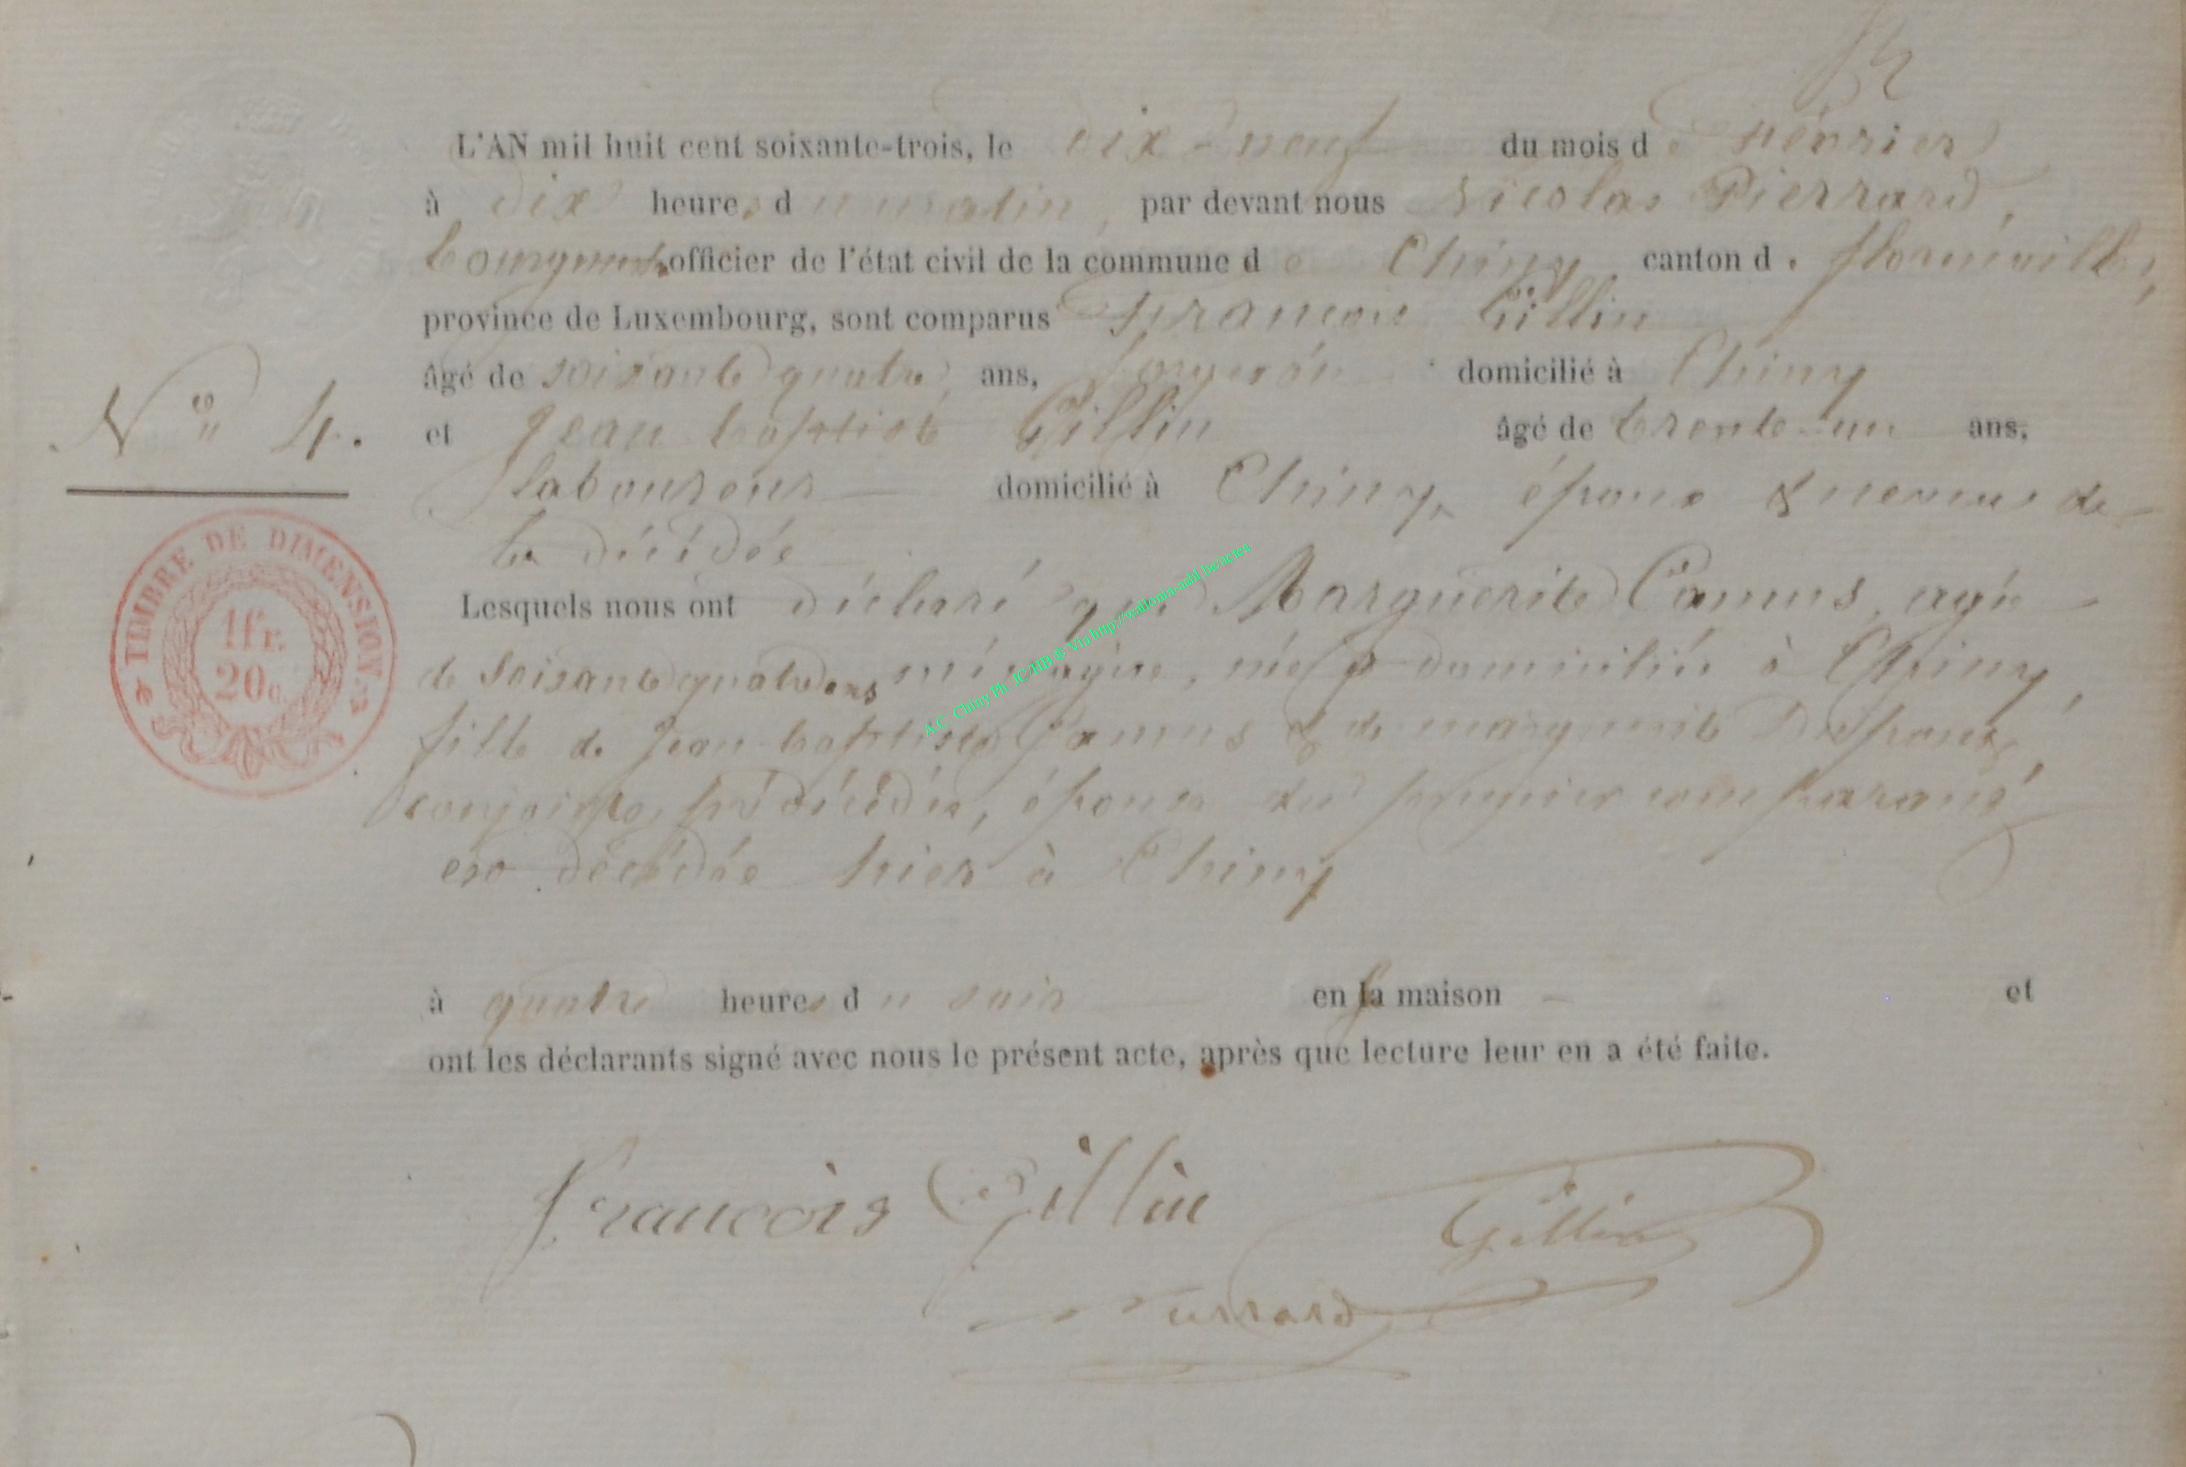 L'AN mil huit cent soixante-trois, le dix-neuf du mois de février
à dix heures du matin, par devant nous Nicolas Pierrard,
officier de l'état civil de la commune de Chiny canton d. florenville,
province de Luxembourg, sont comparus François Gillin
âgé de soixante quatre ans, forgeron domicilié à Chiny
N° 4.
et Jean baptiste Gillin âgé de trente-un ans,
laboureur domicilié à Chiny, époux & neveu de
la décédée
TIMBRE DE DIMENSION
1 fr.
20 c.
Lesquels nous ont déclaré que Marguerite Camus, agée
de soixante quatre ans ménagère, née & domiciliée à Chiny,
fille de Jean baptiste Camus & de marguerite
conjoints prédécédés, épouse du premier comparant
est décédée hier à Chiny
à quatre heures du soir en sa maison et
ont les déclarants signé avec nous le présent acte, après que lecture leur en a été faite.
François Gillin
Gillin
Pierrard